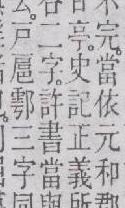 不完。當依元和郡
亭。史記正義所
谷二字。許書當與
云。戸扈鄠三字同